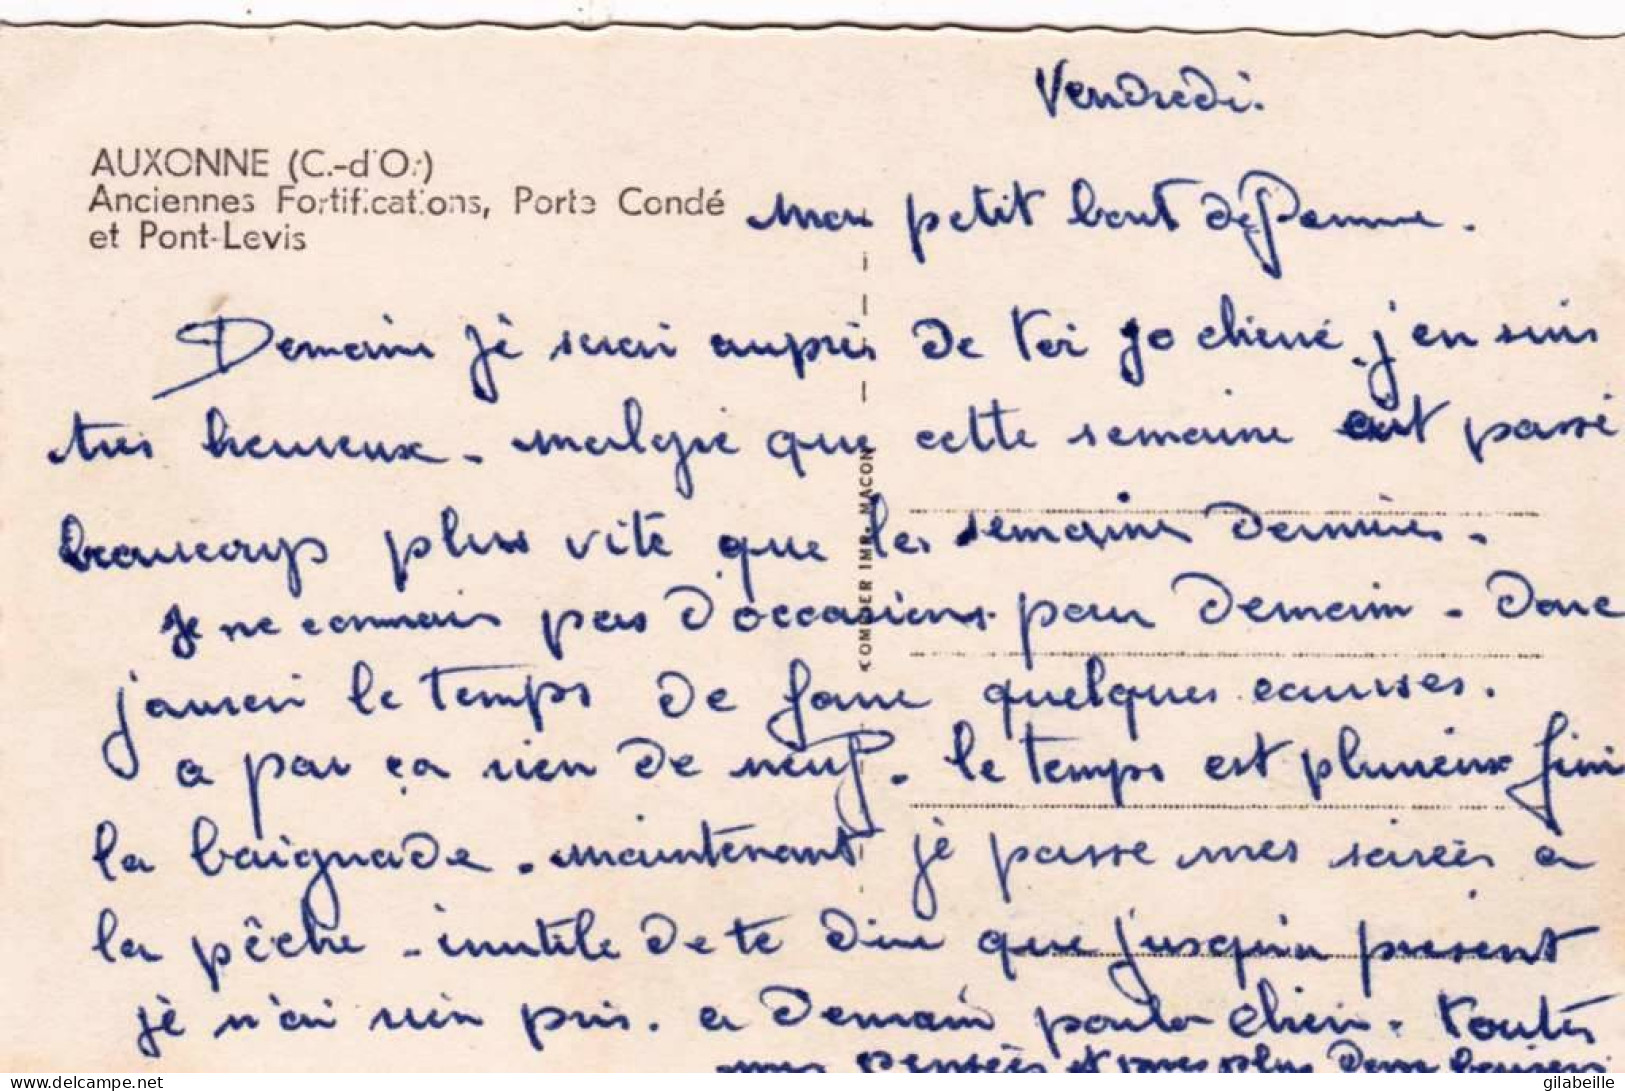 Vendredi.
AUXONNE (C.-d'Or)
Anciennes Fortifications, Porte Condé
et Pont-Levis
Mon petit bout de Femme.
Demain je serai auprès de toi ma chérie j'en suis
très heureux - malgré que cette semaine ait passé
beaucoup plus vite que les semaines dernières.
je ne connais pas d'occasions pour demain - donc
j'aurai le temps de faire quelques courses.
a par ça rien de neuf. le temps est pluvieux fini
la baignade. maintenant je passe mes soirées à
la pêche - inutile de te dire que jusqu'à présent
je n'ai rien pris. a demain chérie. toutes
mes pensées et mes plus doux baisers
COMBIER IMP. MACON
delcampe.net
gilabeille